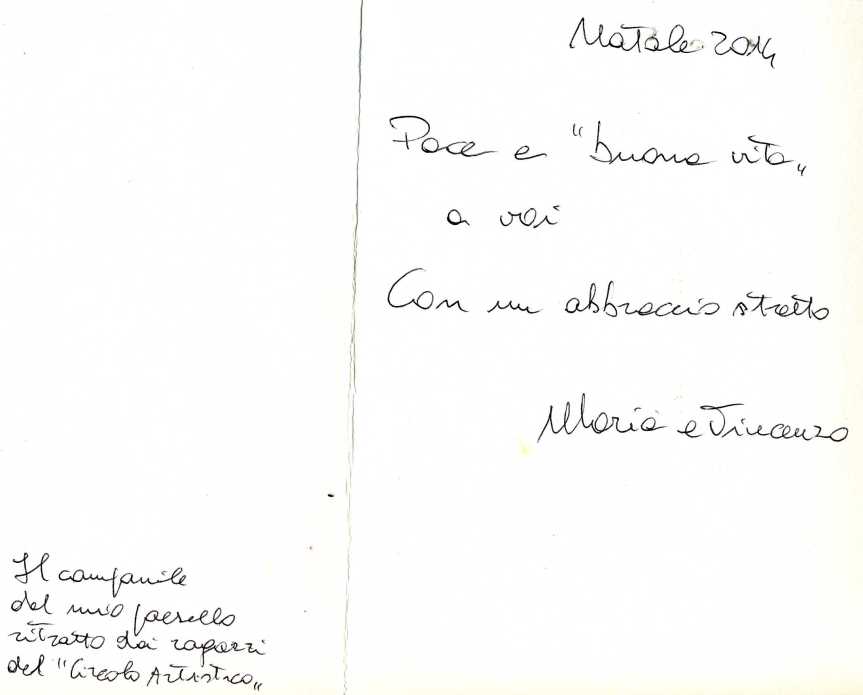 Natale 2014
Pace e "buona vita"
a voi
Con un abbraccio stretto
Maria e Vincenzo
Il campanile
del mio paesello
ritratto dai ragazzi
del "Circolo Artistico"